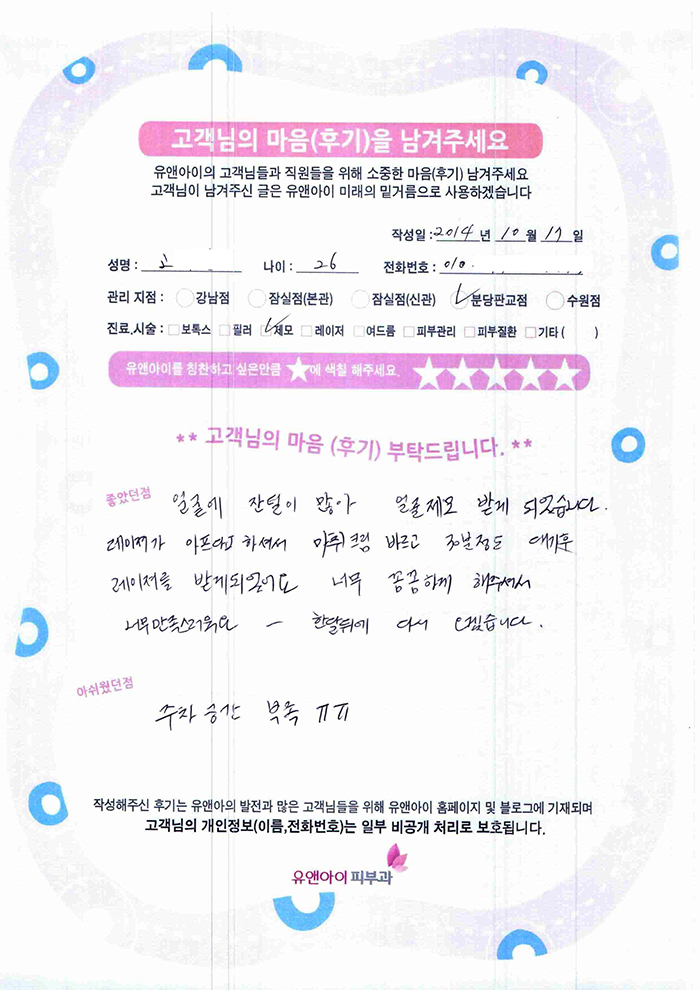 고객님의 마음(후기)을 남겨주세요
유앤아이의 고객님들과 직원들을 위해 소중한 마음(후기) 남겨주세요
고객님이 남겨주신 글은 유앤아이 미래의 밑거름으로 사용하겠습니다
작성일 : 2014 년 10 월 17 일
성명 : 나이 : 26 전화번호 : 010.
관리 지점 : 강남점 잠실점(본관) 잠실점(신관) 분당판교점 수원점
진료.시술 : 보톡스 필러 제모 레이저 여드름 피부관리 피부질환 기타 ( )
유앤아이를 칭찬하고 싶은만큼 ★에 색칠 해주세요. ★★★★★
** 고객님의 마음 (후기) 부탁드립니다. **
좋았던점
얼굴에 잔털이 많아 얼굴제모 받게 되었습니다.
레이져가 아프다 하셔서 마취크림 바르고 30분정도 대기후
레이져를 받게되었어요 너무 꼼꼼하게 해주셔서
너무만족스러워요 ㅡ 한달뒤에 다시 오겠습니다.
아쉬웠던점
주차 공간 부족 ㅠㅠ
작성해주신 후기는 유앤아의 발전과 많은 고객님들을 위해 유앤아이 홈페이지 및 블로그에 기재되며
고객님의 개인정보(이름,전화번호)는 일부 비공개 처리로 보호됩니다.
유앤아이 피부과